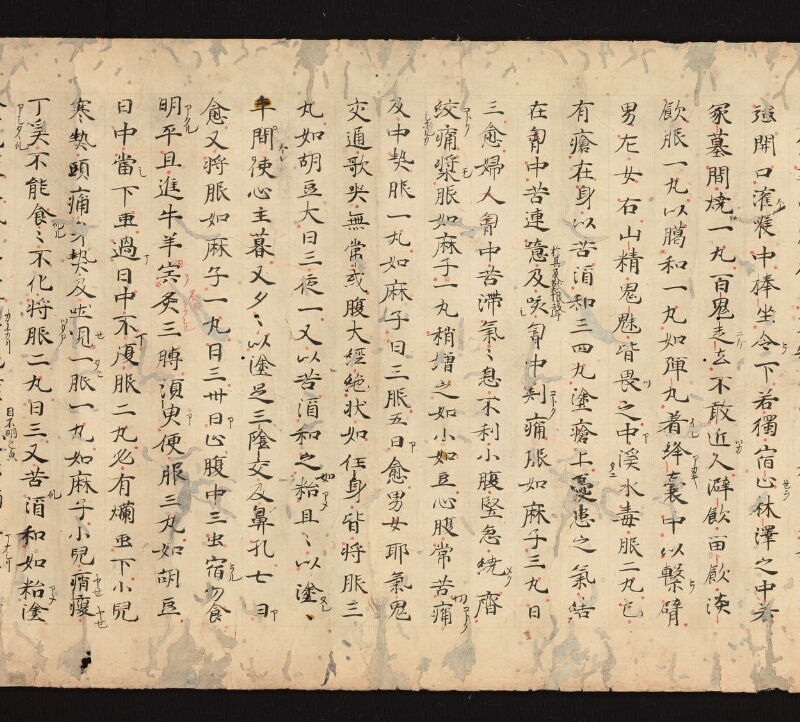 強開口灌喉中捧坐令下若獨宿山林澤之中
冢墓間燒一丸百鬼走去不敢近人澼飲畄飲淡
飲服一丸以臈和一丸如彈丸着絳囊中以繫臂
男左女右山精鬼魅皆畏之中溪水毒服二丸已
有瘡在身以苦酒和三四丸塗瘡上憂患之氣結
在匈中苦連噫及咳匈中刾痛服如麻子三丸日
三愈婦人匈中苦滯氣〻息不利小腹堅急繞齊
絞痛漿服如麻子一丸稍增之如小豆心腹常苦痛
及中熱服一丸如麻子日三服五日愈男女耶氣鬼
交通歌哭無常或腹大經絶狀如任身皆將服三
丸如胡豆大日三夜一又以苦酒和之如粘旦〻以塗
間使心主暮又夕〻以塗足三陰交及鼻孔七日
愈又將服如麻子一丸日三卅日止腹中三虫宿勿食
明平旦進牛羊宍炙三膊須臾便服三丸如胡豆
日中當下虫過日中不下復服二丸必有爛虫下小兒
寒熱頭痛身熱及吐見一服一丸如麻子小兒痟瘦
丁奚不能食〻不化將服二丸日三又苦酒和如粘塗